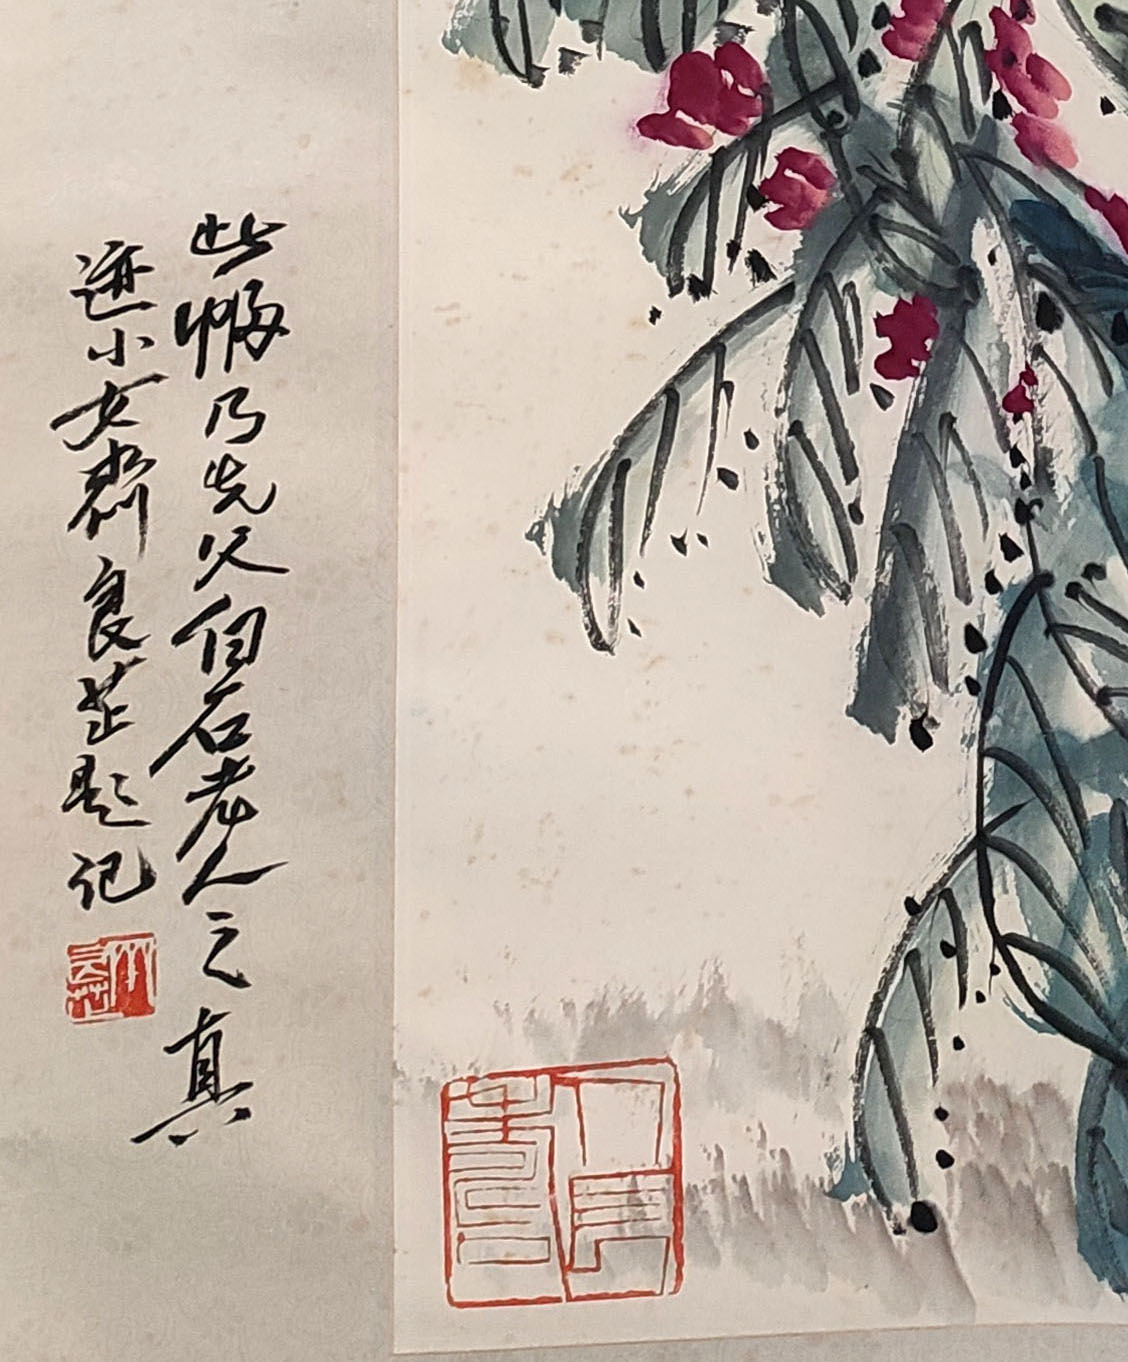 此幅乃先父白石老人之真
迹小女齐良芷题记